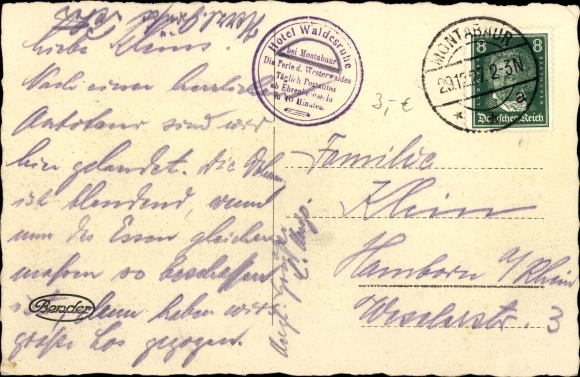 Herzl. Grüße
Liebe Kleins!
Nach einer herrlichen
Autotour sind wir
hier gelandet. Die
ist blendend, wenn
nun das Essen gleicher
maßen so beschaffen
ist, dann haben wir das
große Los gezogen.
Hotel Waldesruhe
bei Montabaur
Die Perle d. Westerwaldes
Täglich Postautos
ab Ehrenbr. in
in 40 Minuten.
3,- €
MONTABAUR
2-3N
a
8 8
BEETHOVEN
Deutsches Reich
Familie
Klein
Hamborn a/Rhein
Weselerstr. 3
Bender